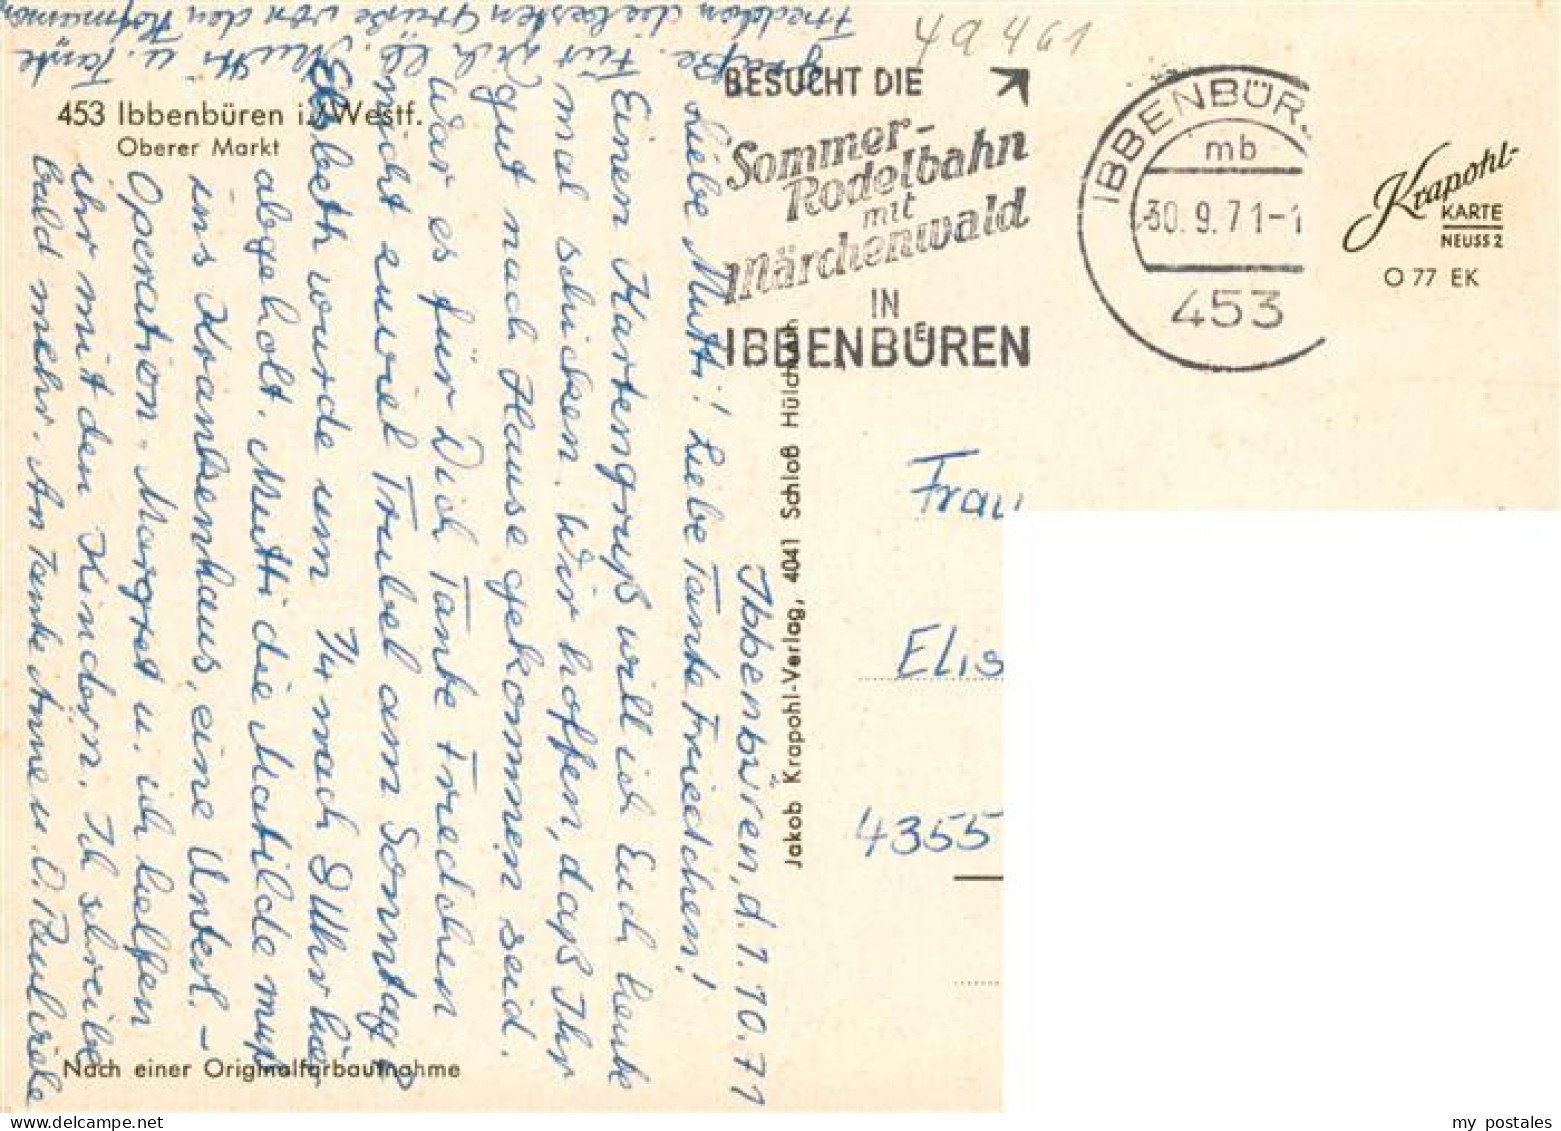 49461
BESUCHT DIE
Sommer-
Rodelbahn
mit
Märchenwald
IN
IBBENBÜREN
IBBENBÜR
mb
30.9.71-1
453
Krapohl-
KARTE
NEUSS 2
O 77 EK
453 Ibbenbüren i./Westf.
Oberer Markt
Ibbenbüren, d. 1.10.71
Liebe Mutti! Liebe Tante Friedchen!
Einen Kartengruß will ich Euch heute
mal schicken. Wir hoffen, daß Ihr
gut nach Hause gekommen seid.
War es für Dich Tante Friedchen
nicht zuviel Trubel am Sonntag?
Elsbeth wurde um 1/4 nach 8 Uhr hier
abgeholt. Mutti die Matilde muß
ins Krankenhaus, eine Unterl.-
Operation. Margret u. ich helfen
ihr mit den Kindern. Ich schreibe
bald mehr. An Tante Änne u. O. Paul viele
Grüße. Für Dich lb. Mutti u. Tante
Friedchen die besten Grüße von den
Jakob Krapohl-Verlag, 4041 Schloß Hülchrath
Frau
Elis
4355
Nach einer Originalfarbaufnahme
my postales